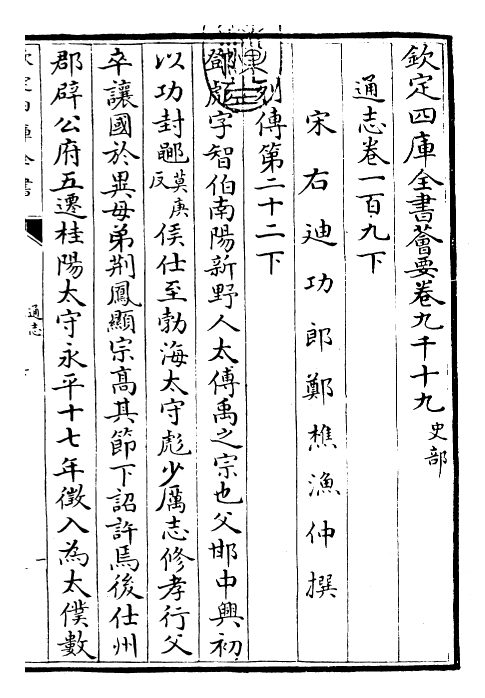 欽定四庫全書薈要卷九千十九 史部
通志卷一百九下
宋右迪功郎鄭樵漁仲撰
列傳第二十二下
鄧彪字智伯南陽新野人太傅禹之宗也父邯中興初
以功封鄳莫庚反侯仕至勃海太守彪少厲志修孝行父
卒讓國於異母弟荆鳳顯宗高其節下詔許焉後仕州
郡辟公府五遷桂陽太守永平十七年徵入為太僕數
欽定四庫全書
通志
一